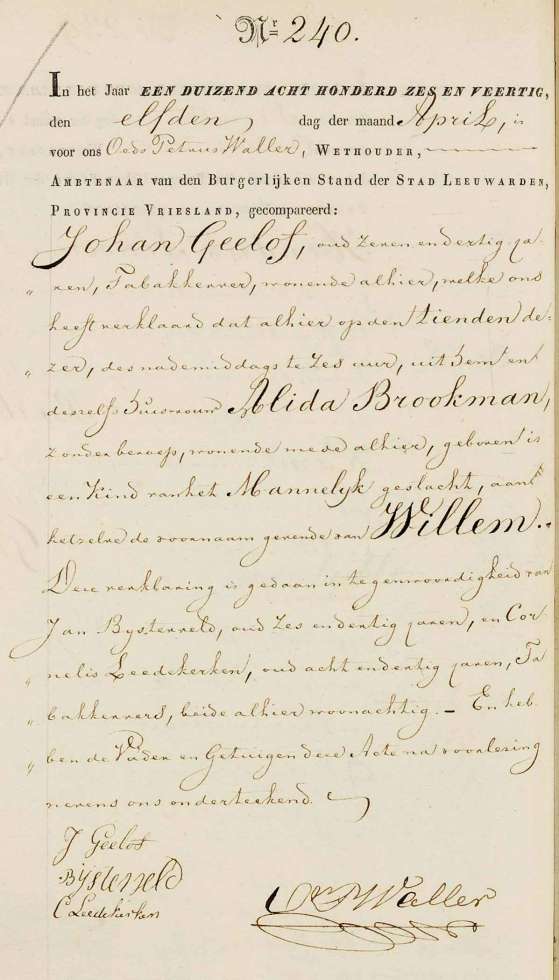 Nr 240.
In het Jaar EEN DUIZEND ACHT HONDERD ZES EN VEERTIG,
den elfden dag der maand April, is
voor ons Oeds Petrus Waller, WETHOUDER,
AMBTENAAR van den Burgerlijken Stand der STAD LEEUWARDEN,
PROVINCIE VRIESLAND, gecompareerd:
Johan Geelof, oud zeven en dertig ja-
„ ren, Tabakkerver, wonende alhier, welke ons
heeft verklaard dat alhier op den tienden de-
„ zer, des nademiddags te zes uur, uit hem en
deszelfs huisvrouw Alida Brookman,
zonder beroep, wonende mede alhier, geboren is
een kind van het Mannelyk geslacht, aan
hetzelve de voornaam gevende van Willem.
Deze verklaring is gedaan in tegenwoordigheid van
Jan Bysterveld, oud zes en dertig jaren, en Cor
„ nelis Leedekerken, oud acht en dertig jaren, Ta
„ bakkervers, beide alhier woonachtig. — En heb
„ ben de Vader en Getuigen deze Acte na voorlezing
nevens ons onderteekend.
J Geelof
Bijsterveld
C Leedekerken
Waller